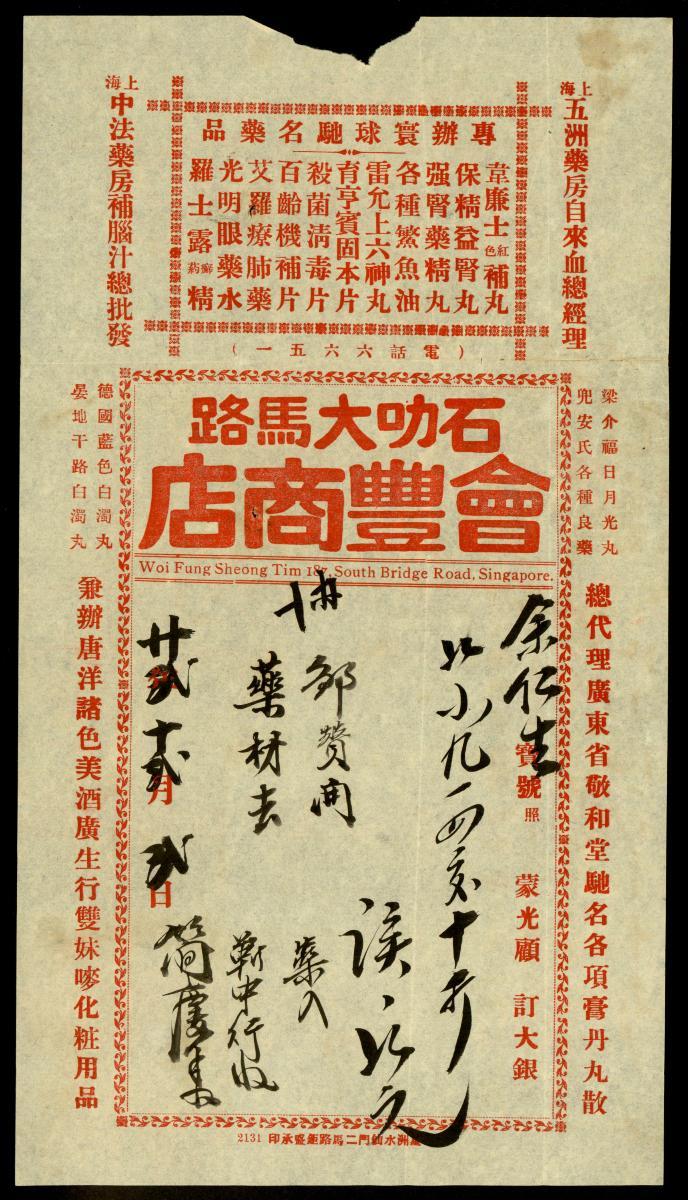 上海五洲藥房自來血總經理
專辦寰球馳名藥品
韋廉士紅色補丸
保精益腎丸
强腎藥精丸
各種鰵魚油
雷允上六神丸
育亨賓固本片
殺菌淸毒片
百齡機補片
艾羅療肺藥
光明眼藥水
羅士露癬药精
上海中法藥房補腦汁總批發
（電話六六五一）
梁介福日月光丸
兜安氏各種良藥
石叻大馬路
會豐商店
Woi Fung Sheong Tim 187, South Bridge Road, Singapore.
德國藍色白濁丸
晏地干路白濁丸
總代理廣東省敬和堂馳名各項膏丹丸散
余仁生寶號照 蒙光顧 訂大銀
藥材去
藥入
廿弍年十弍月弍日
兼辦唐洋諸色美酒廣生行雙妹嘜化粧用品
2131